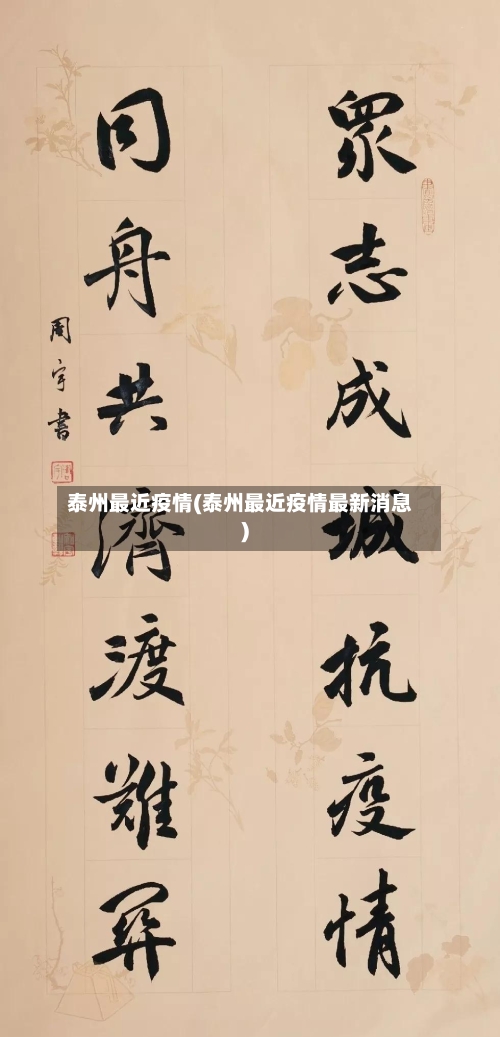 眾志成城抗疫情
同舟共濟渡難關
周宇書
泰州最近疫情(泰州最近疫情最新消息
)